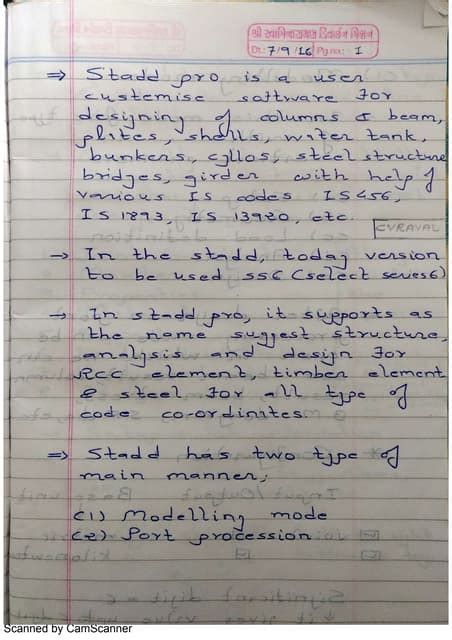 श्री स्वामिनारायण डिवाईन मिशन
Dt.: 7/9/16 Pg.no.: 1
⇒ Stadd pro is a user
customise software for
designing of columns & beam,
plites, shells, water tank,
bunkers, cyllos, steel structure
bridges, girder with help of
various IS codes IS456,
IS 1893, IS 13920, etc.
CVRAVAL
→ In the stadd, today version
to be used ss6 (select series6)
→ In stadd pro, it supports as
the name suggest structure,
analysis and design for
RCC element, timber element
& steel for all type of
code co-ordinates
⇒ Stadd has two type of
main manner;
(1) Modelling mode
(2) Port procession
Scanned by CamScanner